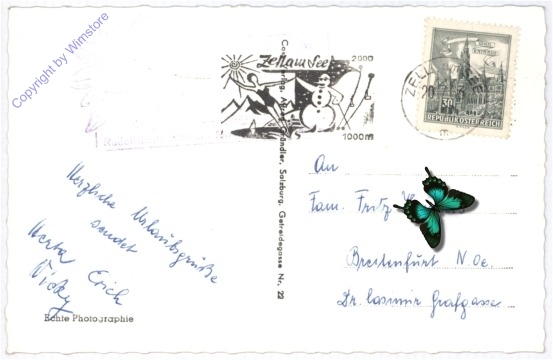 Copyright by Wimstore
Zell am See
2000
1000m
ZELL
20
30g
REPUBLIK ÖSTERREICH
Salzburg, Getreidegasse Nr. 23
Herzliche Urlaubsgrüße
sendet
Herta Erich
Vicky
Echte Photographie
An
Fam. Fritz
Breitenfurt N. Oe.
Dr. Casimir Grafgasse